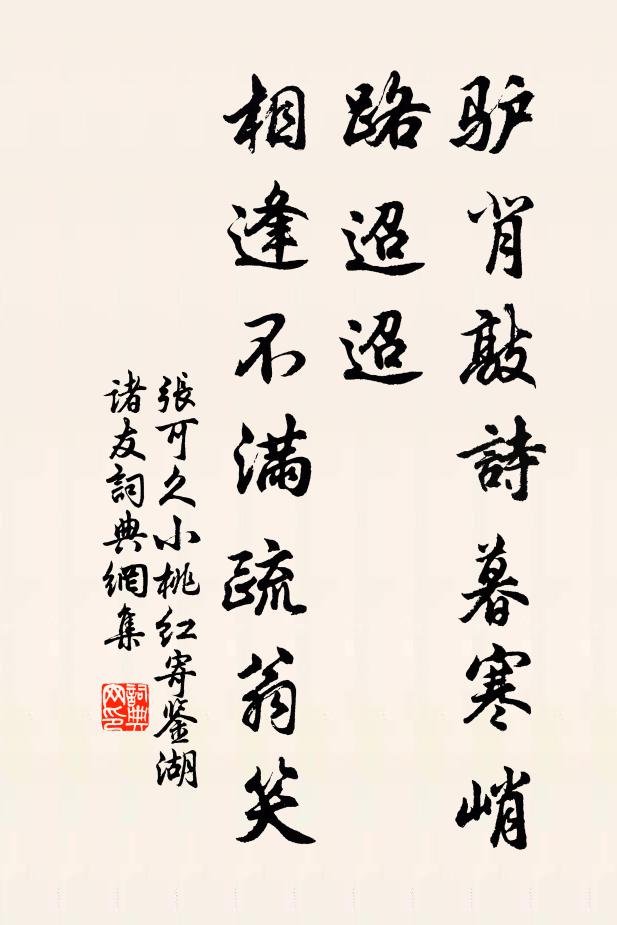 驴背敲詩暮寒峭
路迢迢
相逢不满疏翁笑
張可久小桃红寄鉴湖
诸友詞典網集
詞典
网印